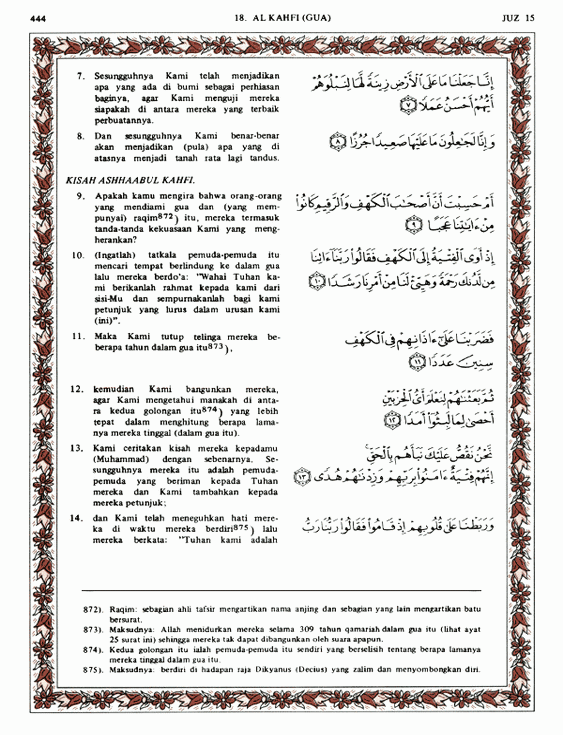 444 18. AL KAHFI (GUA) JUZ 15
7. Sesungguhnya Kami telah menjadikan
apa yang ada di bumi sebagai perhiasan
baginya, agar Kami menguji mereka
siapakah di antara mereka yang terbaik
perbuatannya.
إِنَّا جَعَلْنَا مَا عَلَى الْأَرْضِ زِينَةً لَّهَا لِنَبْلُوَهُمْ
أَيُّهُمْ أَحْسَنُ عَمَلًا ٧
8. Dan sesungguhnya Kami benar-benar
akan menjadikan (pula) apa yang di
atasnya menjadi tanah rata lagi tandus.
وَإِنَّا لَجَاعِلُونَ مَا عَلَيْهَا صَعِيدًا جُرُزًا ٨
KISAH ASHHAABUL KAHFI.
9. Apakah kamu mengira bahwa orang-orang
yang mendiami gua dan (yang mem-
punyai) raqim872) itu, mereka termasuk
tanda-tanda kekuasaan Kami yang meng-
herankan?
أَمْ حَسِبْتَ أَنَّ أَصْحَابَ الْكَهْفِ وَالرَّقِيمِ كَانُوا
مِنْ ءَايَاتِنَا عَجَبًا ٩
10. (Ingatlah) tatkala pemuda-pemuda itu
mencari tempat berlindung ke dalam gua
lalu mereka berdo'a: "Wahai Tuhan ka-
mi berikanlah rahmat kepada kami dari
sisi-Mu dan sempurnakanlah bagi kami
petunjuk yang lurus dalam urusan kami
(ini)".
إِذْ أَوَى الْفِتْيَةُ إِلَى الْكَهْفِ فَقَالُوا رَبَّنَا ءَاتِنَا
مِن لَّدُنكَ رَحْمَةً وَهَيِّئْ لَنَا مِنْ أَمْرِنَا رَشَدًا ١٠
11. Maka Kami tutup telinga mereka be-
berapa tahun dalam gua itu873),
فَضَرَبْنَا عَلَىٰ ءَاذَانِهِمْ فِي الْكَهْفِ
سِنِينَ عَدَدًا ١١
12. kemudian Kami bangunkan mereka,
agar Kami mengetahui manakah di anta-
ra kedua golongan itu874) yang lebih
tepat dalam menghitung berapa lama-
nya mereka tinggal (dalam gua itu).
ثُمَّ بَعَثْنَاهُمْ لِنَعْلَمَ أَيُّ الْحِزْبَيْنِ
أَحْصَىٰ لِمَا لَبِثُوا أَمَدًا ١٢
13. Kami ceritakan kisah mereka kepadamu
(Muhammad) dengan sebenarnya. Se-
sungguhnya mereka itu adalah pemuda-
pemuda yang beriman kepada Tuhan
mereka dan Kami tambahkan kepada
mereka petunjuk;
نَّحْنُ نَقُصُّ عَلَيْكَ نَبَأَهُم بِالْحَقِّ
إِنَّهُمْ فِتْيَةٌ ءَامَنُوا بِرَبِّهِمْ وَزِدْنَاهُمْ هُدًى ١٣
14. dan Kami telah meneguhkan hati mere-
ka di waktu mereka berdiri875) lalu
mereka berkata: "Tuhan kami adalah
وَرَبَطْنَا عَلَىٰ قُلُوبِهِمْ إِذْ قَامُوا فَقَالُوا رَبُّنَا رَبُّ
872). Raqim: sebagian ahli tafsir mengartikan nama anjing dan sebagian yang lain mengartikan batu
bersurat.
873). Maksudnya: Allah menidurkan mereka selama 309 tahun qamariah dalam gua itu (lihat ayat
25 surat ini) sehingga mereka tak dapat dibangunkan oleh suara apapun.
874). Kedua golongan itu ialah pemuda-pemuda itu sendiri yang berselisih tentang berapa lamanya
mereka tinggal dalam gua itu.
875). Maksudnya: berdiri di hadapan raja Dikyanus (Decius) yang zalim dan menyombongkan diri.